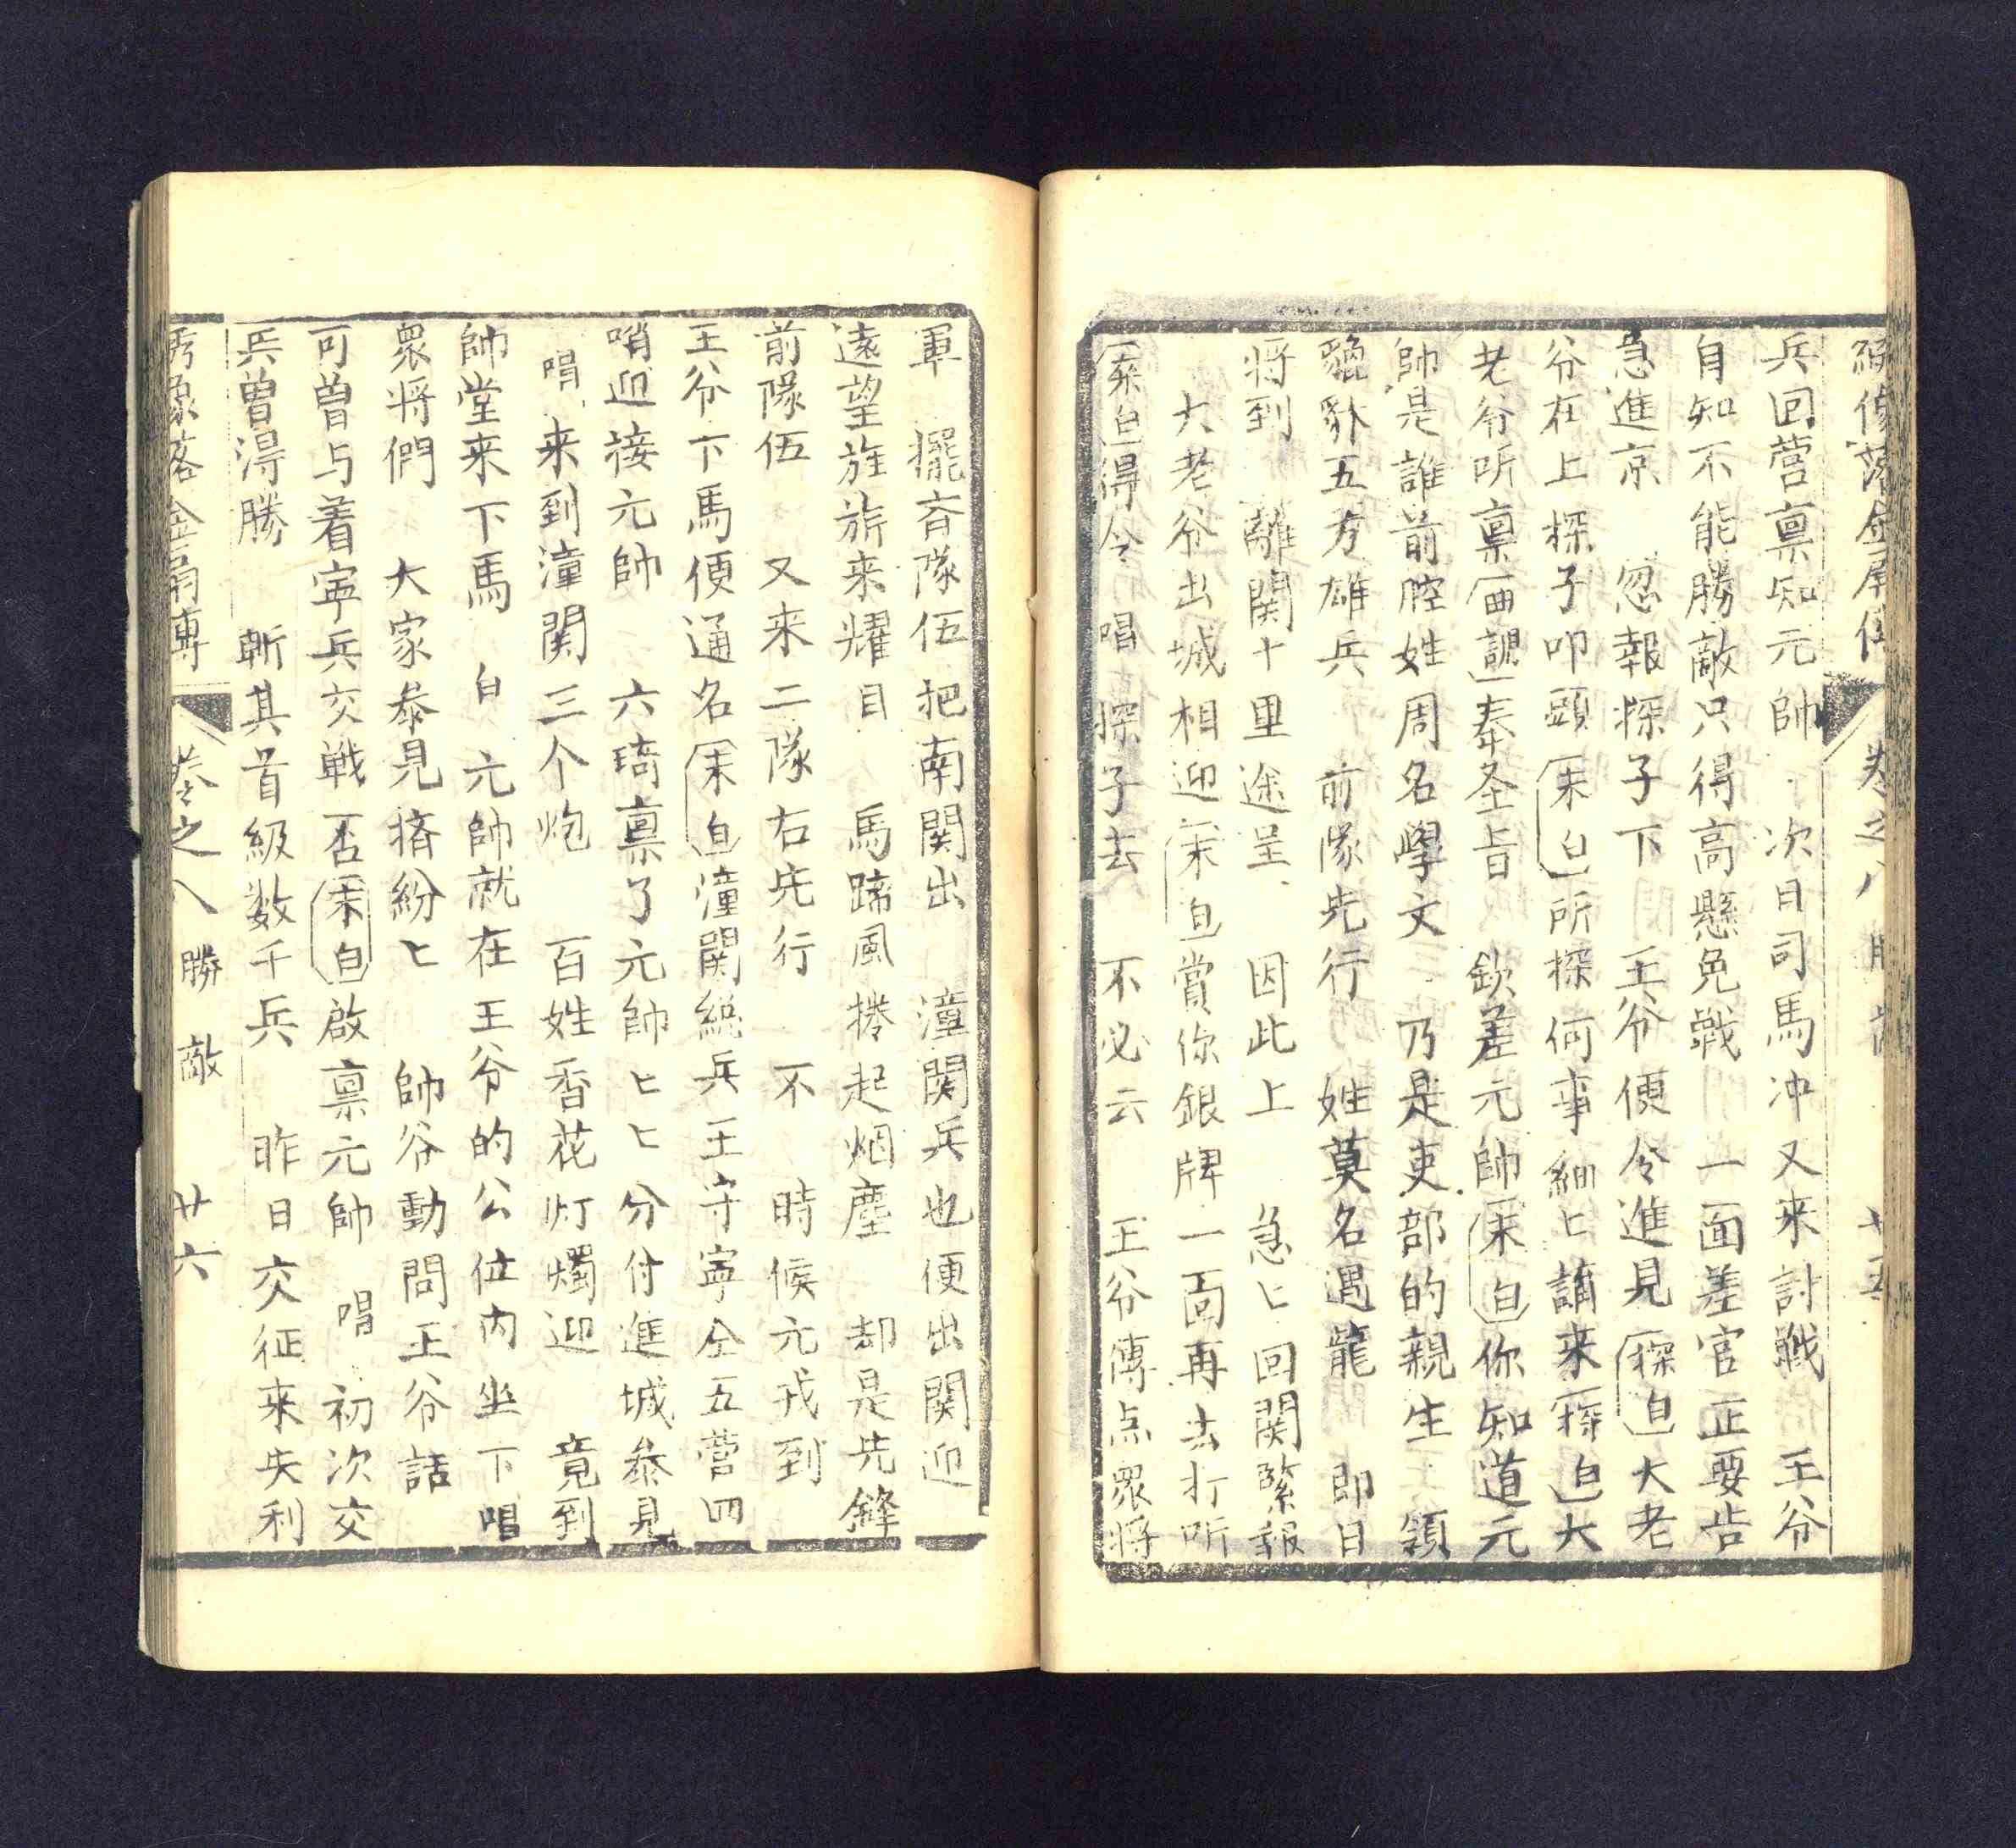 卷之八
兵回营禀知元帅 次日司馬冲又来討戰 王爷
自知不能勝敵只得高懸免戰 一面差官正要告
急進京 忽報探子下 王爷便令進見 探白 大老
爷在上探子叩頭 末白 所探何事細匕誦来 探白 大
老爷听禀 奉圣旨 欽差元帥 末白 你知道元
帥是誰 前腔 姓周名學文 乃是吏部的親生 領
貔貅五方雄兵 前隊先行 姓莫名遇龍 即日
将到 離関十里途呈 因此上 急匕回関緊報
大老爷出城相迎 末白 賞你銀牌一面再去打听
白 得令 唱 探子去 不必云 王爷傳点眾將
軍 擺斉隊伍把南関出 潼関兵也便出関迎
遠望旌旂来耀目 馬蹄風捲起烟塵 却是先鋒
前隊伍 又来二隊右先行 不時候元戎到
王爷下馬便通名 末白 潼関總兵王守寧仝五營四
哨迎接元帥 六琦禀了元帥匕匕分付進城叅見
唱 来到潼関三个炮 百姓香花灯燭迎 竟到
帥堂来下馬 白 元帥就在王爷的公位内坐下唱
眾將們 大家叅見擠紛匕 帥爷動問王爷話
可曾与着寧兵交戦否 末白 啟禀元帥 唱 初次交
兵曾得勝 斬其首級数千兵 昨日交征来失利
秀像落金扇傳 卷之八 勝敵 廿六